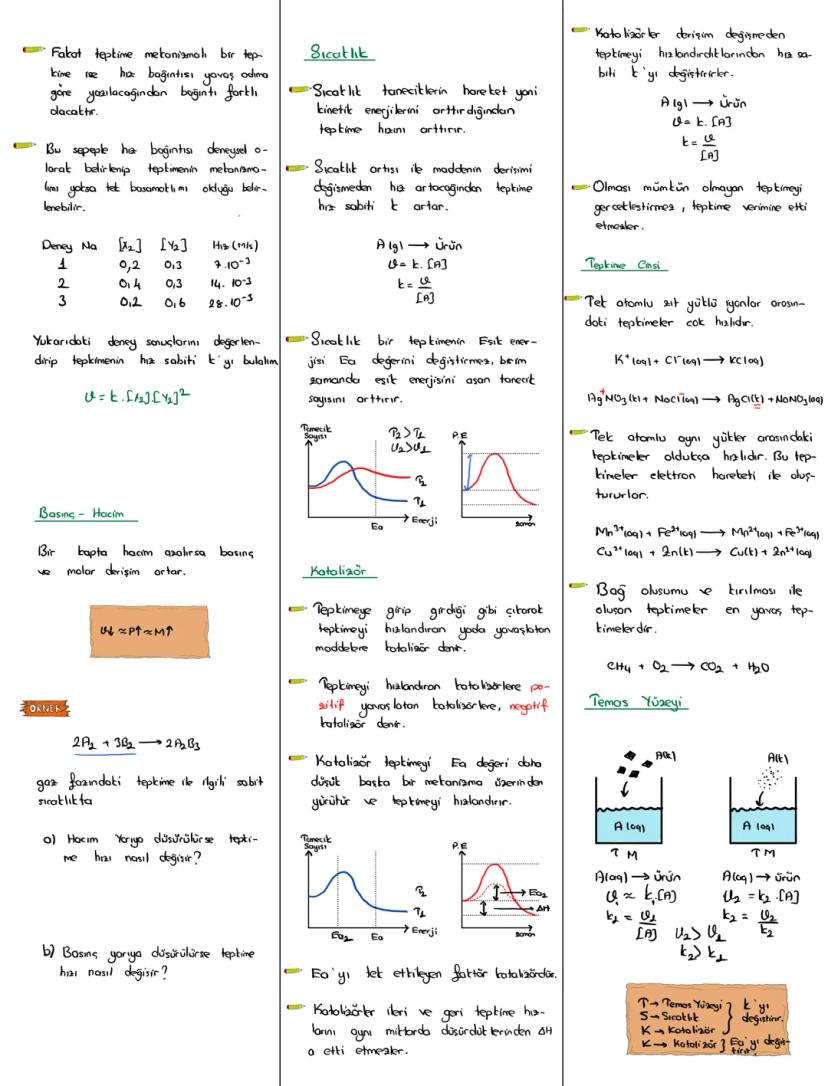 Fakat tepkime mekanizmalı bir tep-
kime ise hız bağıntısı yavaş adıma
göre yazılacağından bağıntı farklı
olacaktır.
Bu sepeple hız bağıntısı deneysel o-
larak belirlenip tepkimenin mekanizma-
lımı yoksa tek basamaklımı olduğu belir-
lenebilir.
Deney No [X₂] [Y₂] Hız (M/s)
1 0,2 0,3 7.10⁻³
2 0,4 0,3 14.10⁻³
3 0,2 0,6 28.10⁻³
Yukarıdaki deney sonuçlarını değerlen-
dirip tepkimenin hız sabiti k'yı bulalım
ϑ = k.[X₂].[Y₂]²
Basınç - Hacim
Bir kapta hacim azalırsa basınç
ve molar derişim artar.
V↓ ≈ P↑ ≈ M↑
ÖRNEK
2A₂ + 3B₂ → 2A₂B₃
gaz fazındaki tepkime ile ilgili sabit
sıcaklıkta
a) Hacim Yarıya düşürülürse tepki-
me hızı nasıl değişir?
b) Basınç yarıya düşürülürse tepkime
hızı nasıl değişir?
Sıcaklık
Sıcaklık taneciklerin hareket yani
kinetik enerjilerini arttırdığından
tepkime hızını arttırır.
Sıcaklık artışı ile maddenin derişimi
değişmeden hız artacağından tepkime
hız sabiti k artar.
A(g) → Ürün
ϑ = k.[A]
k = ϑ
[A]
Sıcaklık bir tepkimenin Eşik ener-
jisi Ea değerini değiştirmez, birim
zamanda eşik enerjisini aşan tanecik
sayısını arttırır.
Tanecik
Sayısı
T₂>T₁
ϑ₂>ϑ₁
T₂
T₁
Enerji
Ea
P.E
zaman
Katalizör
Tepkimeye girip girdiği gibi çıkarak
tepkimeyi hızlandıran yada yavaşlatan
maddelere katalizör denir.
Tepkimeyi hızlandıran katalizörlere po-
zitif yavaşlatan katalizörlere, negatif
katalizör denir.
Katalizör tepkimeyi Ea değeri daha
düşük başka bir mekanizma üzerinden
yürütür ve tepkimeyi hızlandırır.
Tanecik
Sayısı
T₂
T₁
Enerji
Ea₂ Ea
P.E
Ea₂
ΔH
zaman
Ea'yı tek etkileyen faktör katalizördür.
Katalizörler ileri ve geri tepkime hız-
larını aynı miktarda düşürdüklerinden ΔH
a etki etmezler.
Katalizörler derişim değişmeden
tepkimeyi hızlandırdıklarından hız sa-
biti k'yı değiştirirler.
A(g) → Ürün
ϑ = k.[A]
k = ϑ
[A]
Olması mümkün olmayan tepkimeyi
gerçekleştirmez, tepkime verimine etki
etmezler.
Tepkime Cinsi
Tek atomlu zıt yüklü iyonlar arasın-
daki tepkimeler çok hızlıdır.
K⁺(aq) + Cl⁻(aq) → KCl(aq)
Ag⁺NO₃(k) + NaCl⁻(aq) → AgCl(k) + NaNO₃(aq)
Tek atomlu aynı yükler arasındaki
tepkimeler oldukça hızlıdır. Bu tep-
kimeler elektron hareketi ile oluş-
tururlar.
Mn³⁺(aq) + Fe²⁺(aq) → Mn²⁺(aq) + Fe³⁺(aq)
Cu²⁺(aq) + Zn(k) → Cu(k) + Zn²⁺(aq)
Bağ oluşumu ve kırılması ile
oluşan tepkimeler en yavaş tep-
kimelerdir.
CH₄ + O₂ → CO₂ + H₂O
Temas Yüzeyi
A(k)
A(k)
A(aq)
A(aq)
T M
T M
A(aq) → Ürün
A(aq) → Ürün
ϑ ≈ k₁[A]
ϑ₂ = k₂.[A]
k₁ = ϑ₁
[A]
k₂ = ϑ₂
k₂
ϑ₂>ϑ₁
k₂>k₁
T→ Temas Yüzeyi
S→ Sıcaklık
K→ Katalizör
k'yı
değiştirir.
K→ Katalizör } Ea'yı değiş-
tirir.